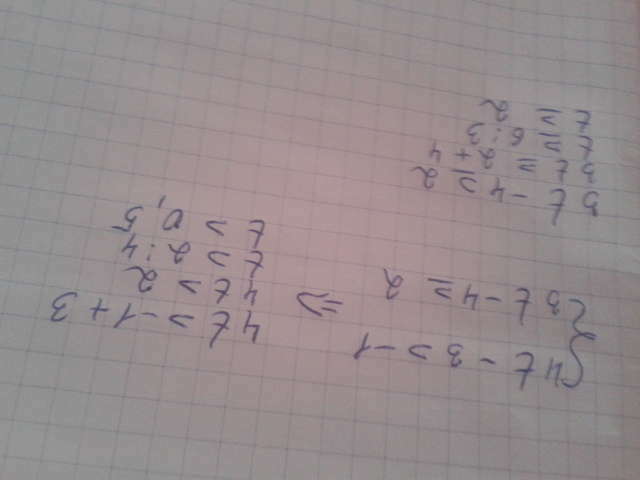 4t - 3 > -1
3t - 4 ≥ 2 ⇒
4t > -1 + 3
4t > 2
t > 2 : 4
t > 0,5
3t - 4 ≥ 2
3t ≥ 2 + 4
t ≥ 6 : 3
t ≥ 2